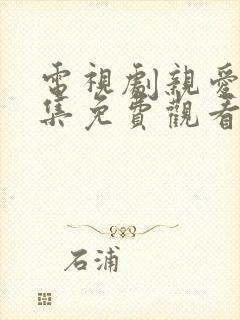 電視劇親愛
集免費觀看
石浦